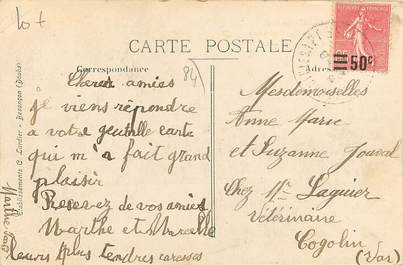 lot
CARTE POSTALE
Correspondance
84
Adresse
RÉPUBLIQUE FRANÇAISE
50c
Chères amies
je viens répondre
a votre gentille carte
qui m'a fait grand
plaisir
Resevez de vos amies
Marthe et Marcelle
leurs plus tendres caresses
Mesdemoiselles
Anne Marie
et Suzanne
Chez Mr Laguier
Vétérinaire
Cogolin
(Var)
Etablissements C. Lardier - Besançon (Doubs)
Marthe